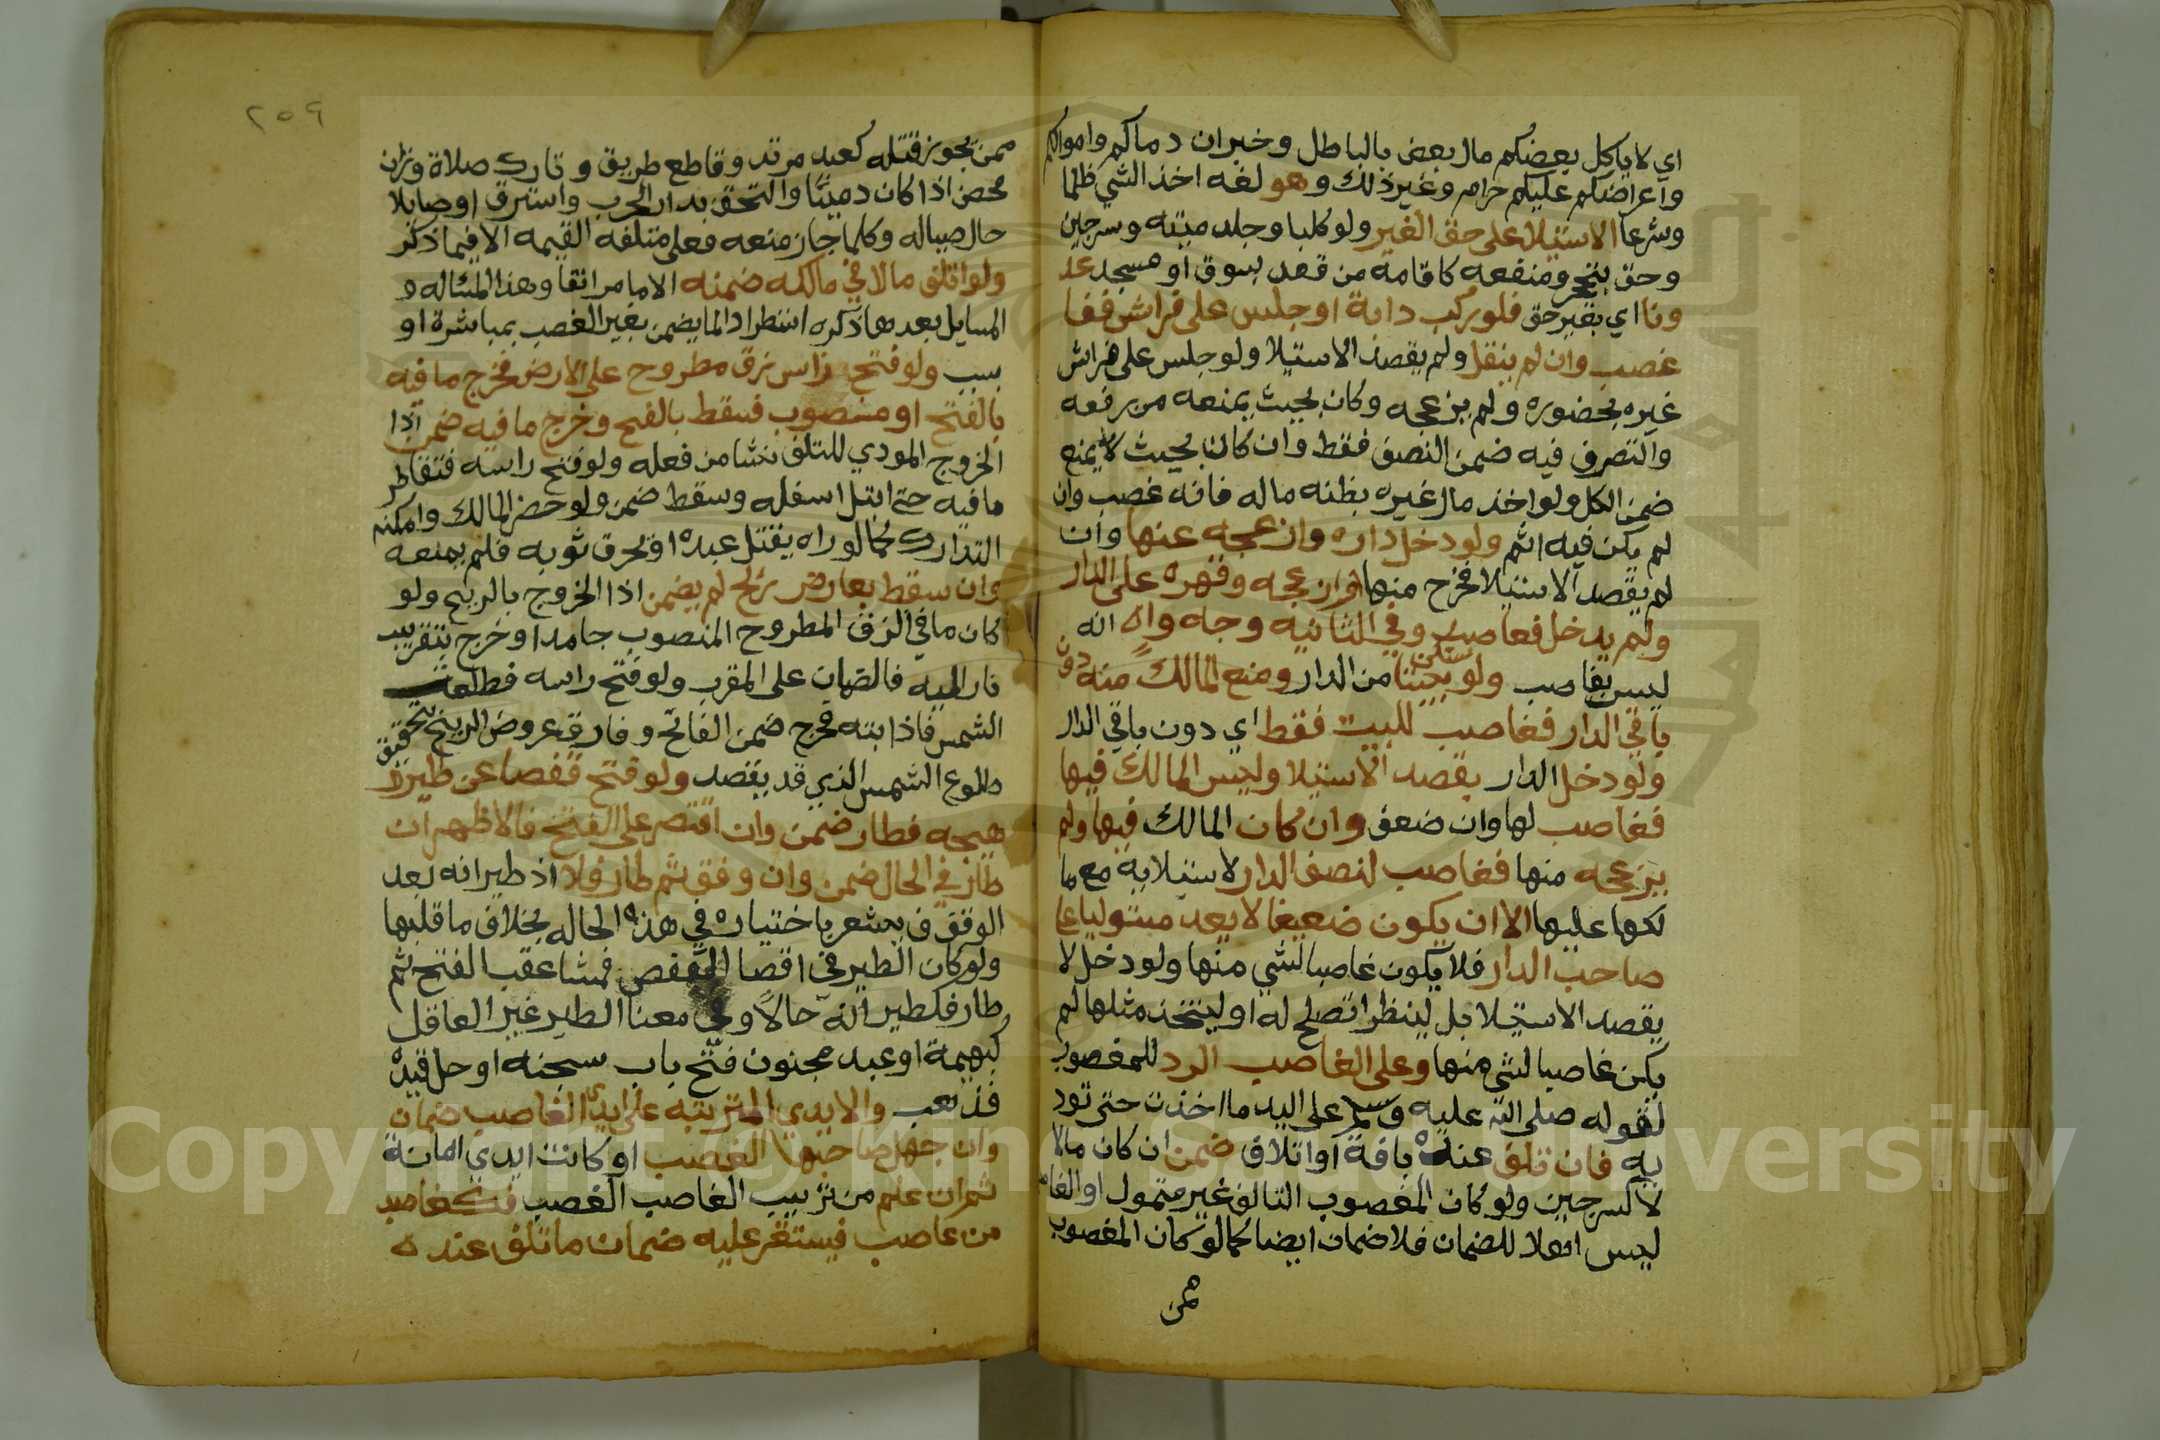 اي لا ياكل بعضكم مال بعض بالباطل وخبر ان دماكم واموالكم
واعراضكم عليكم حرام وغير ذلك وهو لغه اخذ الشي ظلما
وشرعا الاستيلا على حق الغير ولو كلبا وجلد ميته وسرجين
وحق تحجر ومنفعه كاقامة من قعد بسوق او مسجد عد
ونا اي بغير حق فلو ركب دابة او جلس على فراش فغا
غصب وان لم ينقل ولم يقصد الاستيلا ولو جلس على فراش
غيره بحضوره ولم يزعجه وكان بحيث يمنعه من رفعه
والتصرف فيه ضمن النصف فقط وان كان بحيث لا يمنع
ضمن الكل ولو اخذ مال غيره بظنه ماله فانه غصب وان
لم يكن فيه اثم ولو دخل داره وازعجه عنها وان
لم يقصد الاستيلا فخرج منها او ازعجه وقهره على الدار
ولم يدخل فغاصب وفي الثانيه وجه واه انه
ليس بغاصب ولو سكن بيتا من الدار ومنع المالك منه دون
باقي الدار فغاصب للبيت فقط اي دون باقي الدار
ولو دخل الدار بقصد الاستيلا وليس المالك فيها
فغاصب لها وان ضعف وان كان المالك فيها ولم
يزعجه منها فغاصب لنصف الدار لاستيلايه مع ما
لكها عليها الا ان يكون ضعيفا لا يعد مستوليا على
صاحب الدار فلا يكون غاصبا لشي منها ولو دخل لا
يقصد الاستيلا بل لينظر اتصلح له او ليتخذ مثلها لم
يكن غاصبا لشي منها وعلى الغاصب الرد للمغصوب
لقوله صلى الله عليه وسلم على اليد ما اخذت حتى تود
يه فان تلف عنده بافة او اتلاف ضمن ان كان مالا
لا كسرجين ولو كان المغصوب التالف غير متمول او الغا
ليس اهلا للضمان فلا ضمان ايضا كما لو كان المغصوب
ممن
٢٥٩
ممن يجوز قتله كعبد مرتد وقاطع طريق وتارك صلاة وزان
محصن اذا كان دميا والتحق بدار الحرب واسترق او صايلا
حال صياله وكلما جاز منعه فعلى متلفه القيمه الا فيما ذكر
ولو اتلف مالا في يد مالكه ضمنه الا ما مر انفا وهذا المساله و
المسايل بعدها ذكره استطرادا لما يضمن بغير الغصب بمباشرة او
سبب ولو فتح راس زق مطروح على الارض فخرج ما فيه
بالفتح او منصوب فسقط بالفتح وخرج ما فيه ضمن اذا
الخروج المودي للتلف نشا من فعله ولو فتح راسه فتقاطر
ما فيه حتى ابتل اسفله وسقط ضمن ولو حضر المالك وامكنه
التدارك كما لو راه يقتل عبده او يحرق ثوبه فلم يمنعه
وان سقط بعارض ريح لم يضمن اذا الخروج بالريح ولو
كان ما في الزق المطروح المنصوب جامدا وخرج بتقريب
نار اليه فالضمان على المقرب ولو فتح راسه فطلعت
الشمس فاذابته فخرج ضمن الفاتح وفارق عروض الريح بتحقيق
طلوع الشمس الذي قد يقصد ولو فتح قفصا عن طير و
هيجه فطار ضمن وان اقتصر على الفتح فالاظهر ان
طار في الحال ضمن وان وقف ثم طار فلا اذ طيرانه بعد
الوقوف يشعر باختياره في هذه الحاله بخلاف ما قبلها
ولو كان الطير في اقصا القفص فمشا عقب الفتح ثم
طار فكطيرانه حالا وفي معنا الطير غير العاقل
كبهيمة او عبد مجنون فتح باب سجنه او حل قيده
فذهب والايدي المترتبه على ايدي الغاصب ضمان
وان جهل صاحبها الغصب او كانت ايدي امانة
ثم ان علم من ترتيب الغاصب الغصب فكغاصب
من غاصب فيستقر عليه ضمان ما تلف عنده
Copyright © King Saud University